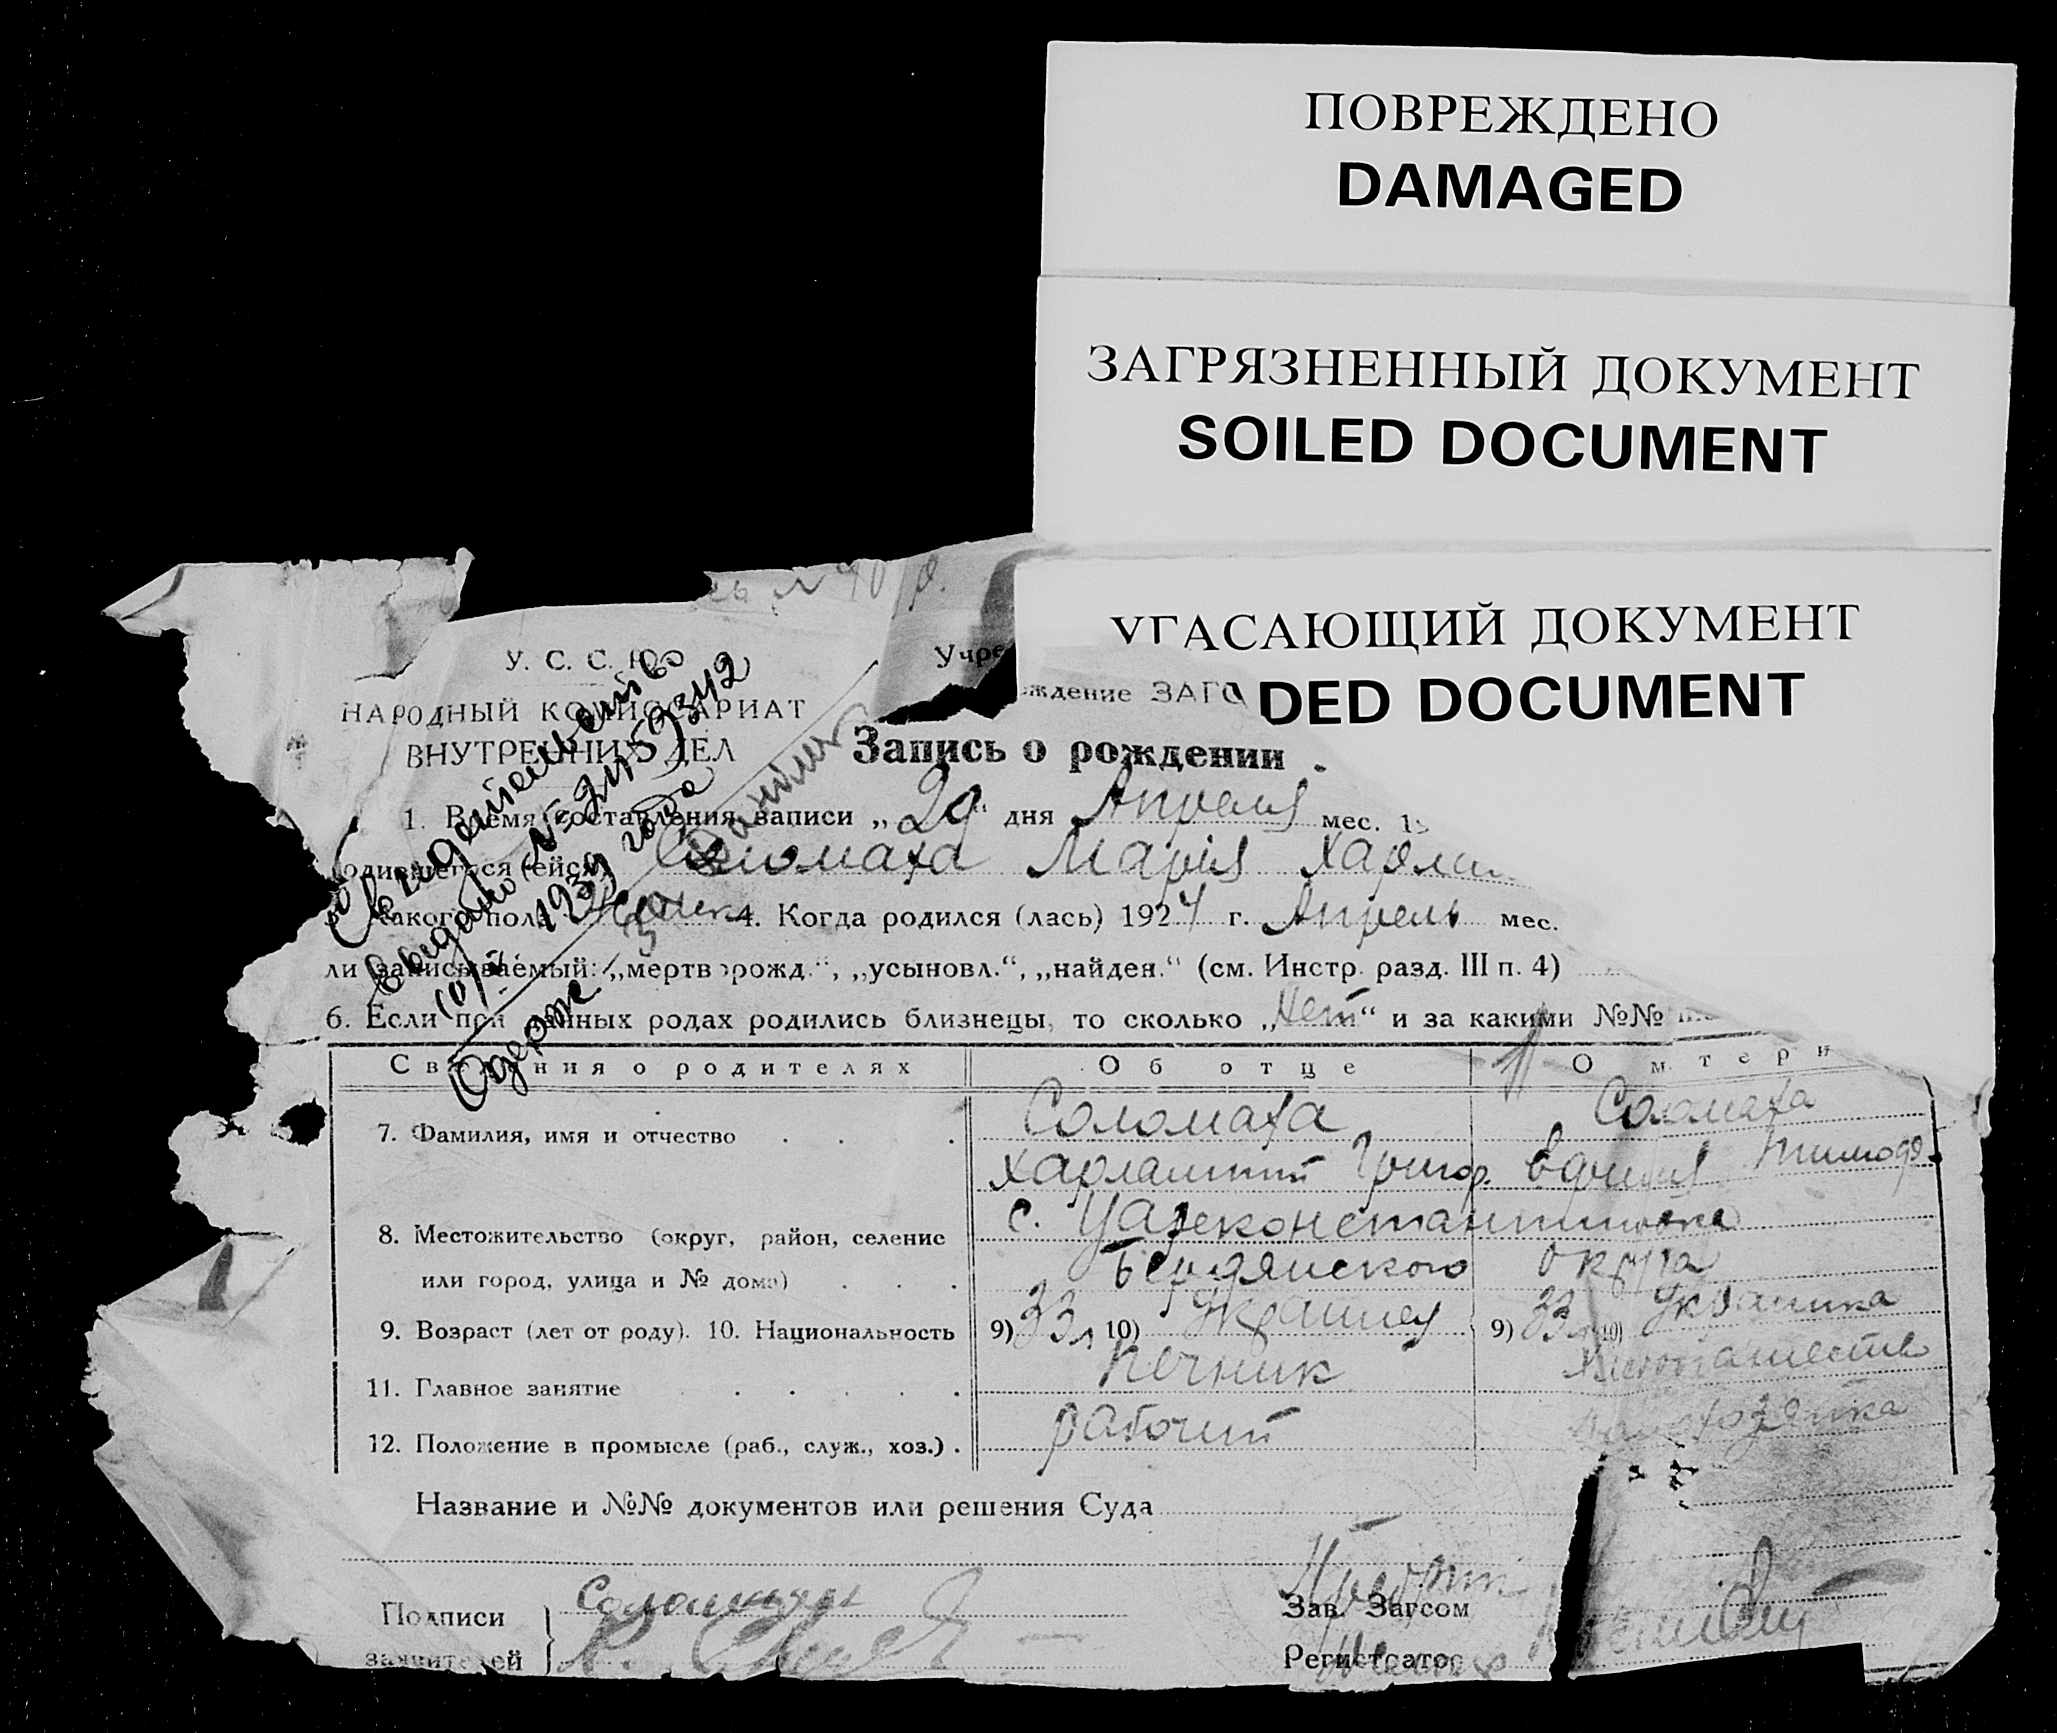 ПОВРЕЖДЕНО
DAMAGED
ЗАГРЯЗНЕННЫЙ ДОКУМЕНТ
SOILED DOCUMENT
УГАСАЮЩИЙ ДОКУМЕНТ
DED DOCUMENT
У. С. С.
НАРОДНЫЙ КОМИССАРИАТ
ВНУТРЕННИХ ДЕЛ
Учре
ждение ЗАГС
Свидетельство
выдано №
1934 года
Запись о рождении
1. Время составления записи „29“ дня Апреля мес. 19
родившегося (ейся) Соломаха Марія Харлам
какого пола 4. Когда родился (лась) 1924 г. Апрель мес.
ли записываемый: „мертворожд.“, „усыновл.“, „найден.“ (см. Инстр. разд. III п. 4)
6. Если при данных родах родились близнецы, то сколько „Нет“ и за какими №№
Сведения о родителях Об отце О матери
7. Фамилия, имя и отчество Соломаха Соломаха
Харлампий Григор. Тимоф.
8. Местожительство (округ, район, селение с. Цареконстантиновка
или город, улица и № дома) Бердянского округа
9. Возраст (лет от роду). 10. Национальность 9) 33 л 10) Украинец 9) 33 л 10) Украинка
11. Главное занятие Печник
12. Положение в промысле (раб., служ., хоз.) рабочий хозяйка
Название и №№ документов или решения Суда
Подписи
заявителей
Зав. Загсом
Регистратор